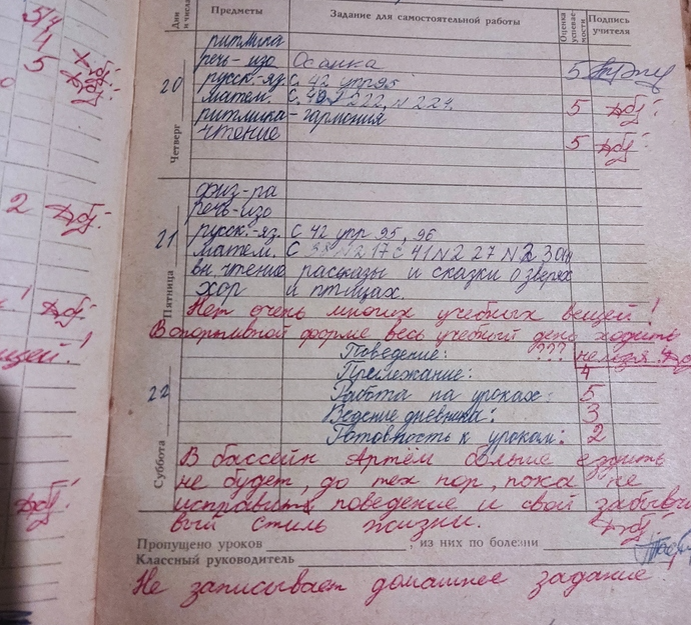 5/4
4
5
2
щей!
Дни и числа
Предметы
Задание для самостоятельной работы
Оценка успеваемости
Подпись учителя
20
Четверг
ритмика
речь-изо Осанка 5
русск.-яз. с. 42 упр 95
матем. с. 222, N 224. 5
ритмика - гармония
чтение 5
21
Пятница
физ-ра
речь-изо
русск.-яз. с 42 упр 95, 96
матем. с N 217 с 41 N 227 N 230
вн. чтение рассказы и сказки о зверях
хор и птицах.
Нет очень многих учебных вещей!
В спортивной форме весь учебный день ходить
Поведение: ??? нельзя.
22
Суббота
Прилежание: 4
Работа на уроках: 5
Ведение дневника: 3
Готовность к урокам: 2
В бассейн Артём больше ездить
не будет, до тех пор, пока не
исправит поведение и свой забывчи
вый стиль жизни.
Пропущено уроков , из них по болезни
Классный руководитель
Не записывает домашнее задание